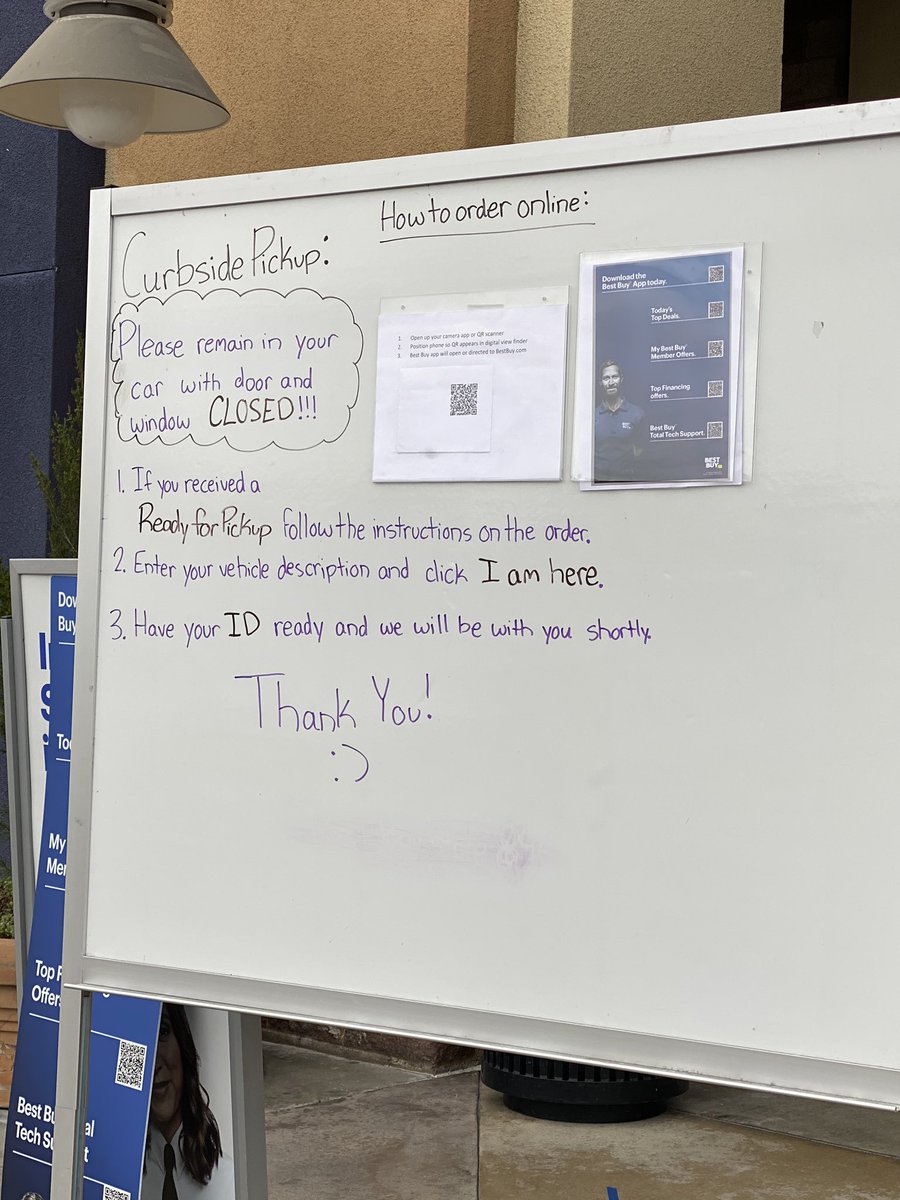 How to order online:
Curbside Pickup:
Please remain in your
car with door and
window CLOSED!!!
1. Open up your camera app or QR scanner
2. Position phone so QR appears in digital view finder
3. Best Buy app will open or directed to BestBuy.com
Download the
Best Buy App today.
Today's
Top Deals.
My Best Buy
Member Offers.
Top Financing
offers.
Best Buy
Total Tech Support.
BEST
BUY
1. If you received a
Ready for Pickup follow the instructions on the order.
2. Enter your vehicle description and click I am here.
3. Have your ID ready and we will be with you shortly.
Thank You!
:)
Dow
Buy
To
My
Mem
Top F
Offers
Best Bu
Tech Su
al
t